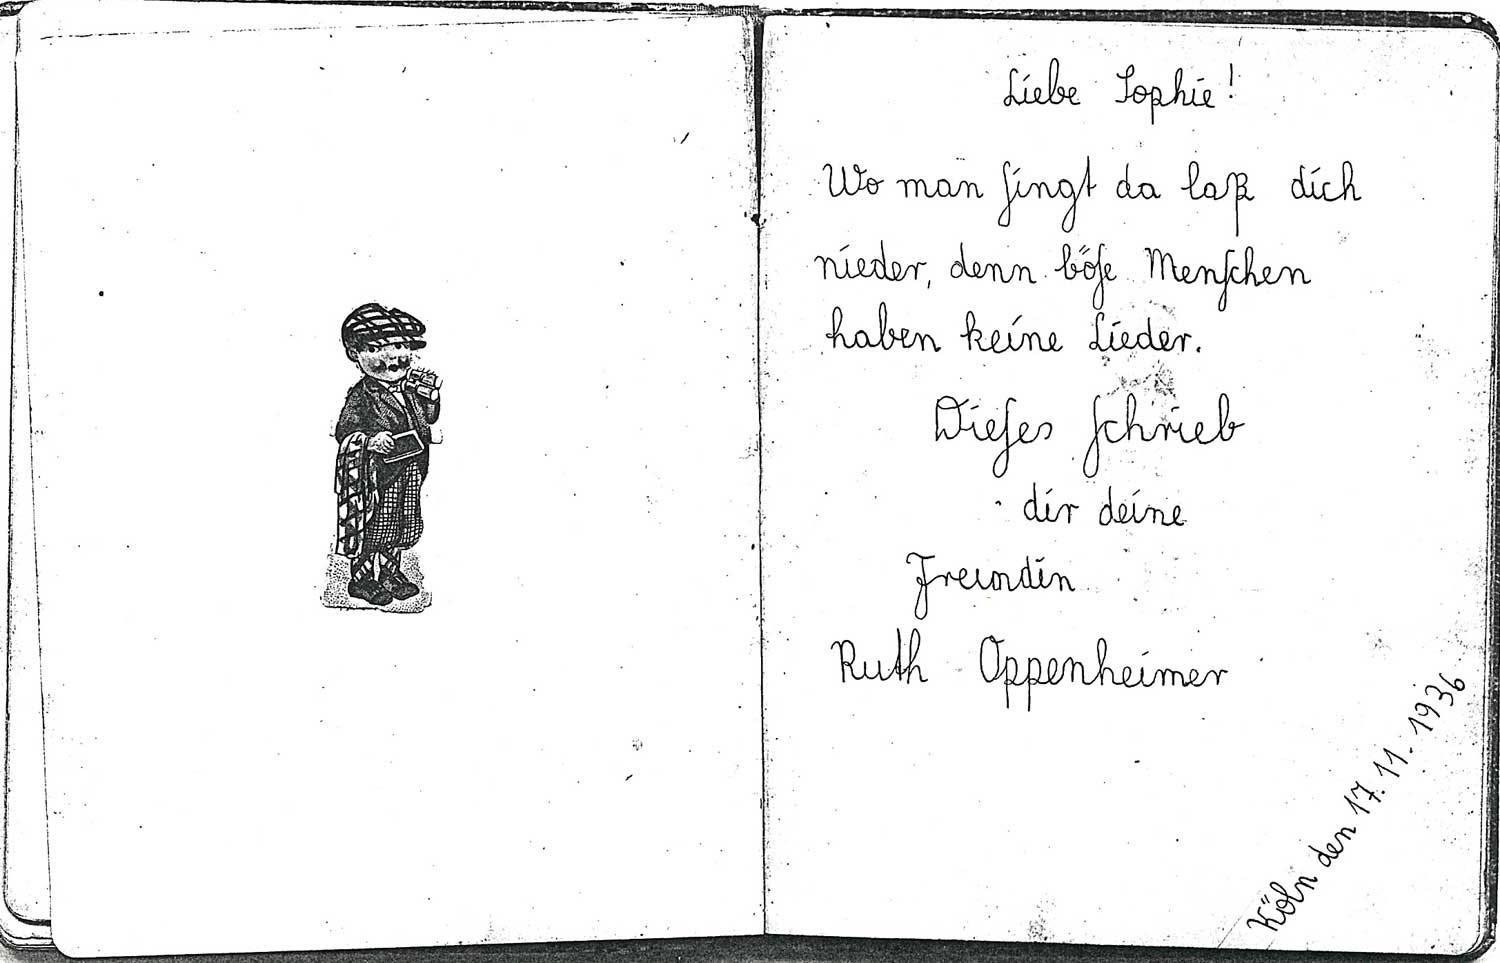 Liebe Sophie!
Wo man singt da laß dich
nieder, denn böse Menschen
haben keine Lieder.
Dieses schrieb
dir deine
Freundin
Ruth Oppenheimer
Köln den 17. 11. 1936